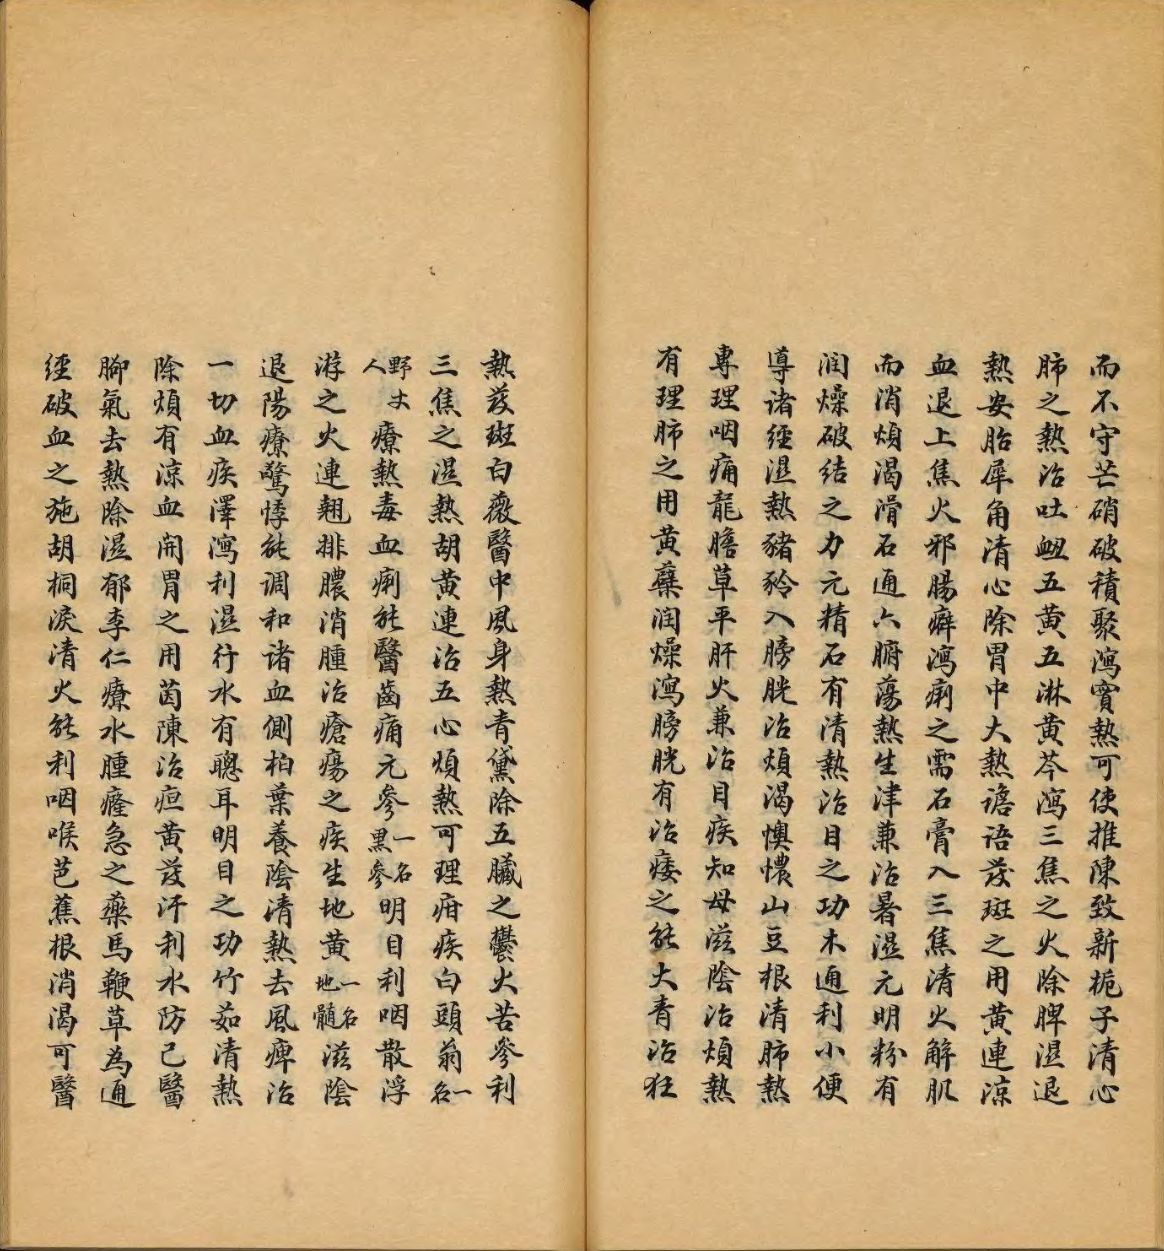 而不守芒硝破積聚瀉實熱可使推陳致新梔子清心
肺之熱治吐衄五黄五淋黄芩瀉三焦之火除脾濕退
熱安胎犀角清心除胃中大熱譫語發斑之用黄連涼
血退上焦火邪腸癖瀉痢之需石膏入三焦清火解肌
而消煩渴滑石通六腑蕩熱生津兼治暑濕元明粉有
润燥破结之力元精石有清熱治目之功木通利小便
導諸經濕熱豬苓入膀胱治煩渴懊憹山豆根清肺熱
專理咽痛龍膽草平肝火兼治目疾知母滋陰治煩熱
有理肺之用黄蘗润燥瀉膀胱有治痿之能大青治狂
熱發斑白薇醫中風身熱青黛除五臟之鬱火苦參利
三焦之濕熱胡黄連治五心煩熱可理疳疾白頭翁一名
野丈人療熱毒血痢能醫齒痛元參一名黑參明目利咽散浮
游之火連翹排膿消腫治瘡瘍之疾生地黄一名地髓滋陰
退陽療驚悸能调和诸血側柏葉養陰清熱去風痺治
一切血疾澤瀉利濕行水有聰耳明目之功竹茹清熱
除煩有涼血開胃之用茵陳治疸黄發汗利水防己醫
腳氣去熱除濕郁李仁療水腫癃急之藥馬鞭草為通
經破血之施胡桐淚清火能利咽喉芭蕉根消渴可醫